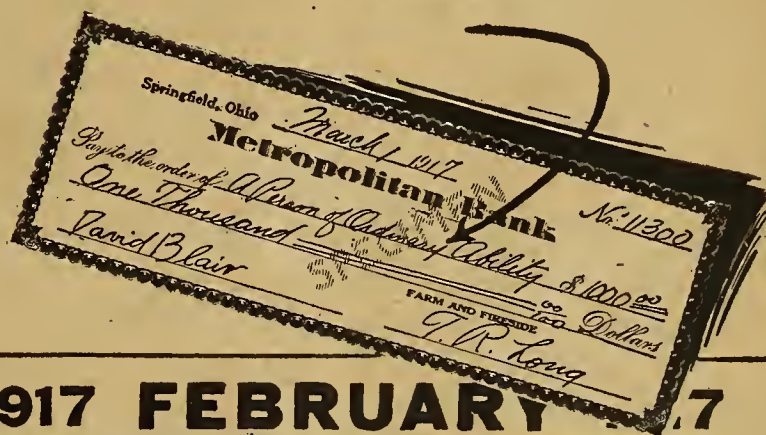 Springfield, Ohio March 1, 1917
Metropolitan Bank
No. 11300
Pay to the order of A Person of Ordinary Ability $ 1000 00
One Thousand 00/100 Dollars
FARM AND FIRESIDE
David Blair
T. R. Long
917 FEBRUARY 7